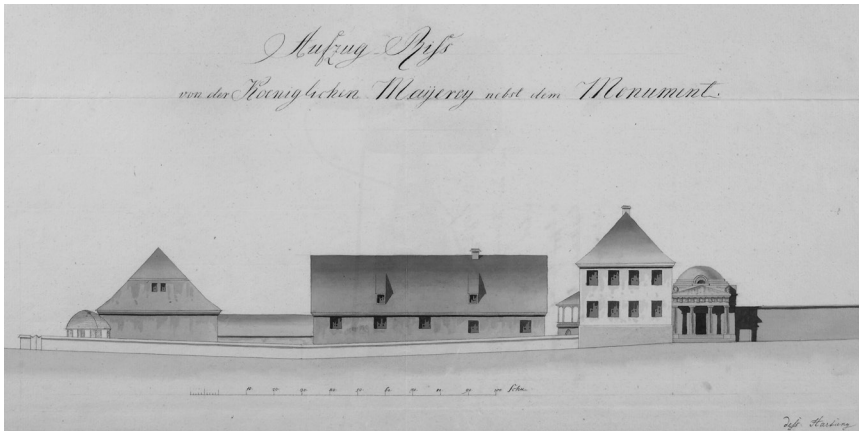 Aufzug Riſs
von der Koeniglichen Maÿerey nebst dem Monument.
10 20 30 40 50 60 70 80 90 100 Schu
deſs. Hartung